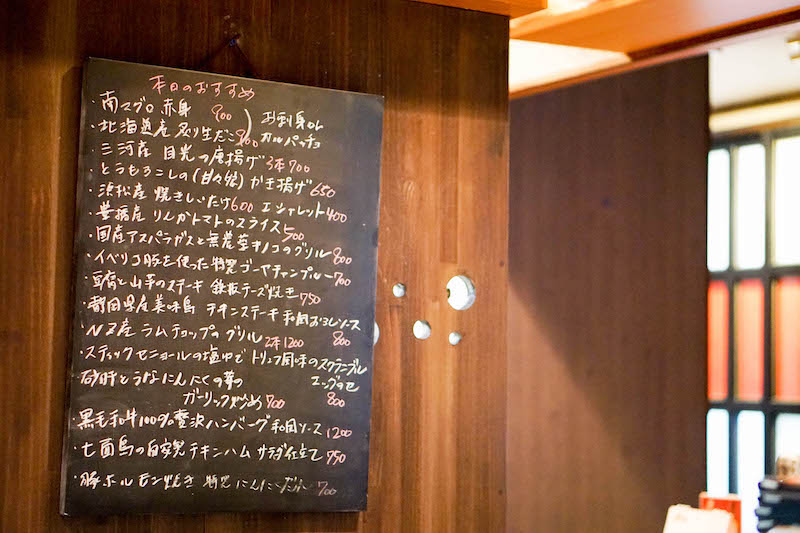 本日のおすすめ
・南マグロ 赤身 900 お刺身or
・北海道産 炙り生だこ カルパッチョ
・三河産 目光の唐揚げ 3本700
・とうもろこしの(甘々娘)かき揚げ 650
・浜松産 焼きしいたけ600 エシャレット400
・豊橋産 りんかトマトのスライス 500
・国産アスパラガスと無農薬キノコのグリル 800
・イベリコ豚を使った特製ゴーヤチャンプルー 700
・豆腐と山芋のステーキ 鉄板チーズ焼き 750
・静岡県産美味鳥 チキンステーキ 和風おろしソース 800
・NZ産 ラムチョップのグリル 2本1200
・スティックセニョールの塩ゆで トリュフ風味のスクランブル
エッグのせ 800
・砂肝と にんにくの芽の
ガーリック炒め 700
・黒毛和牛100%贅沢ハンバーグ 和風ソース 1200
・七面鳥の自家製チキンハム サラダ仕立て 750
・豚ホルモン焼き 特製にんにくだれ 700